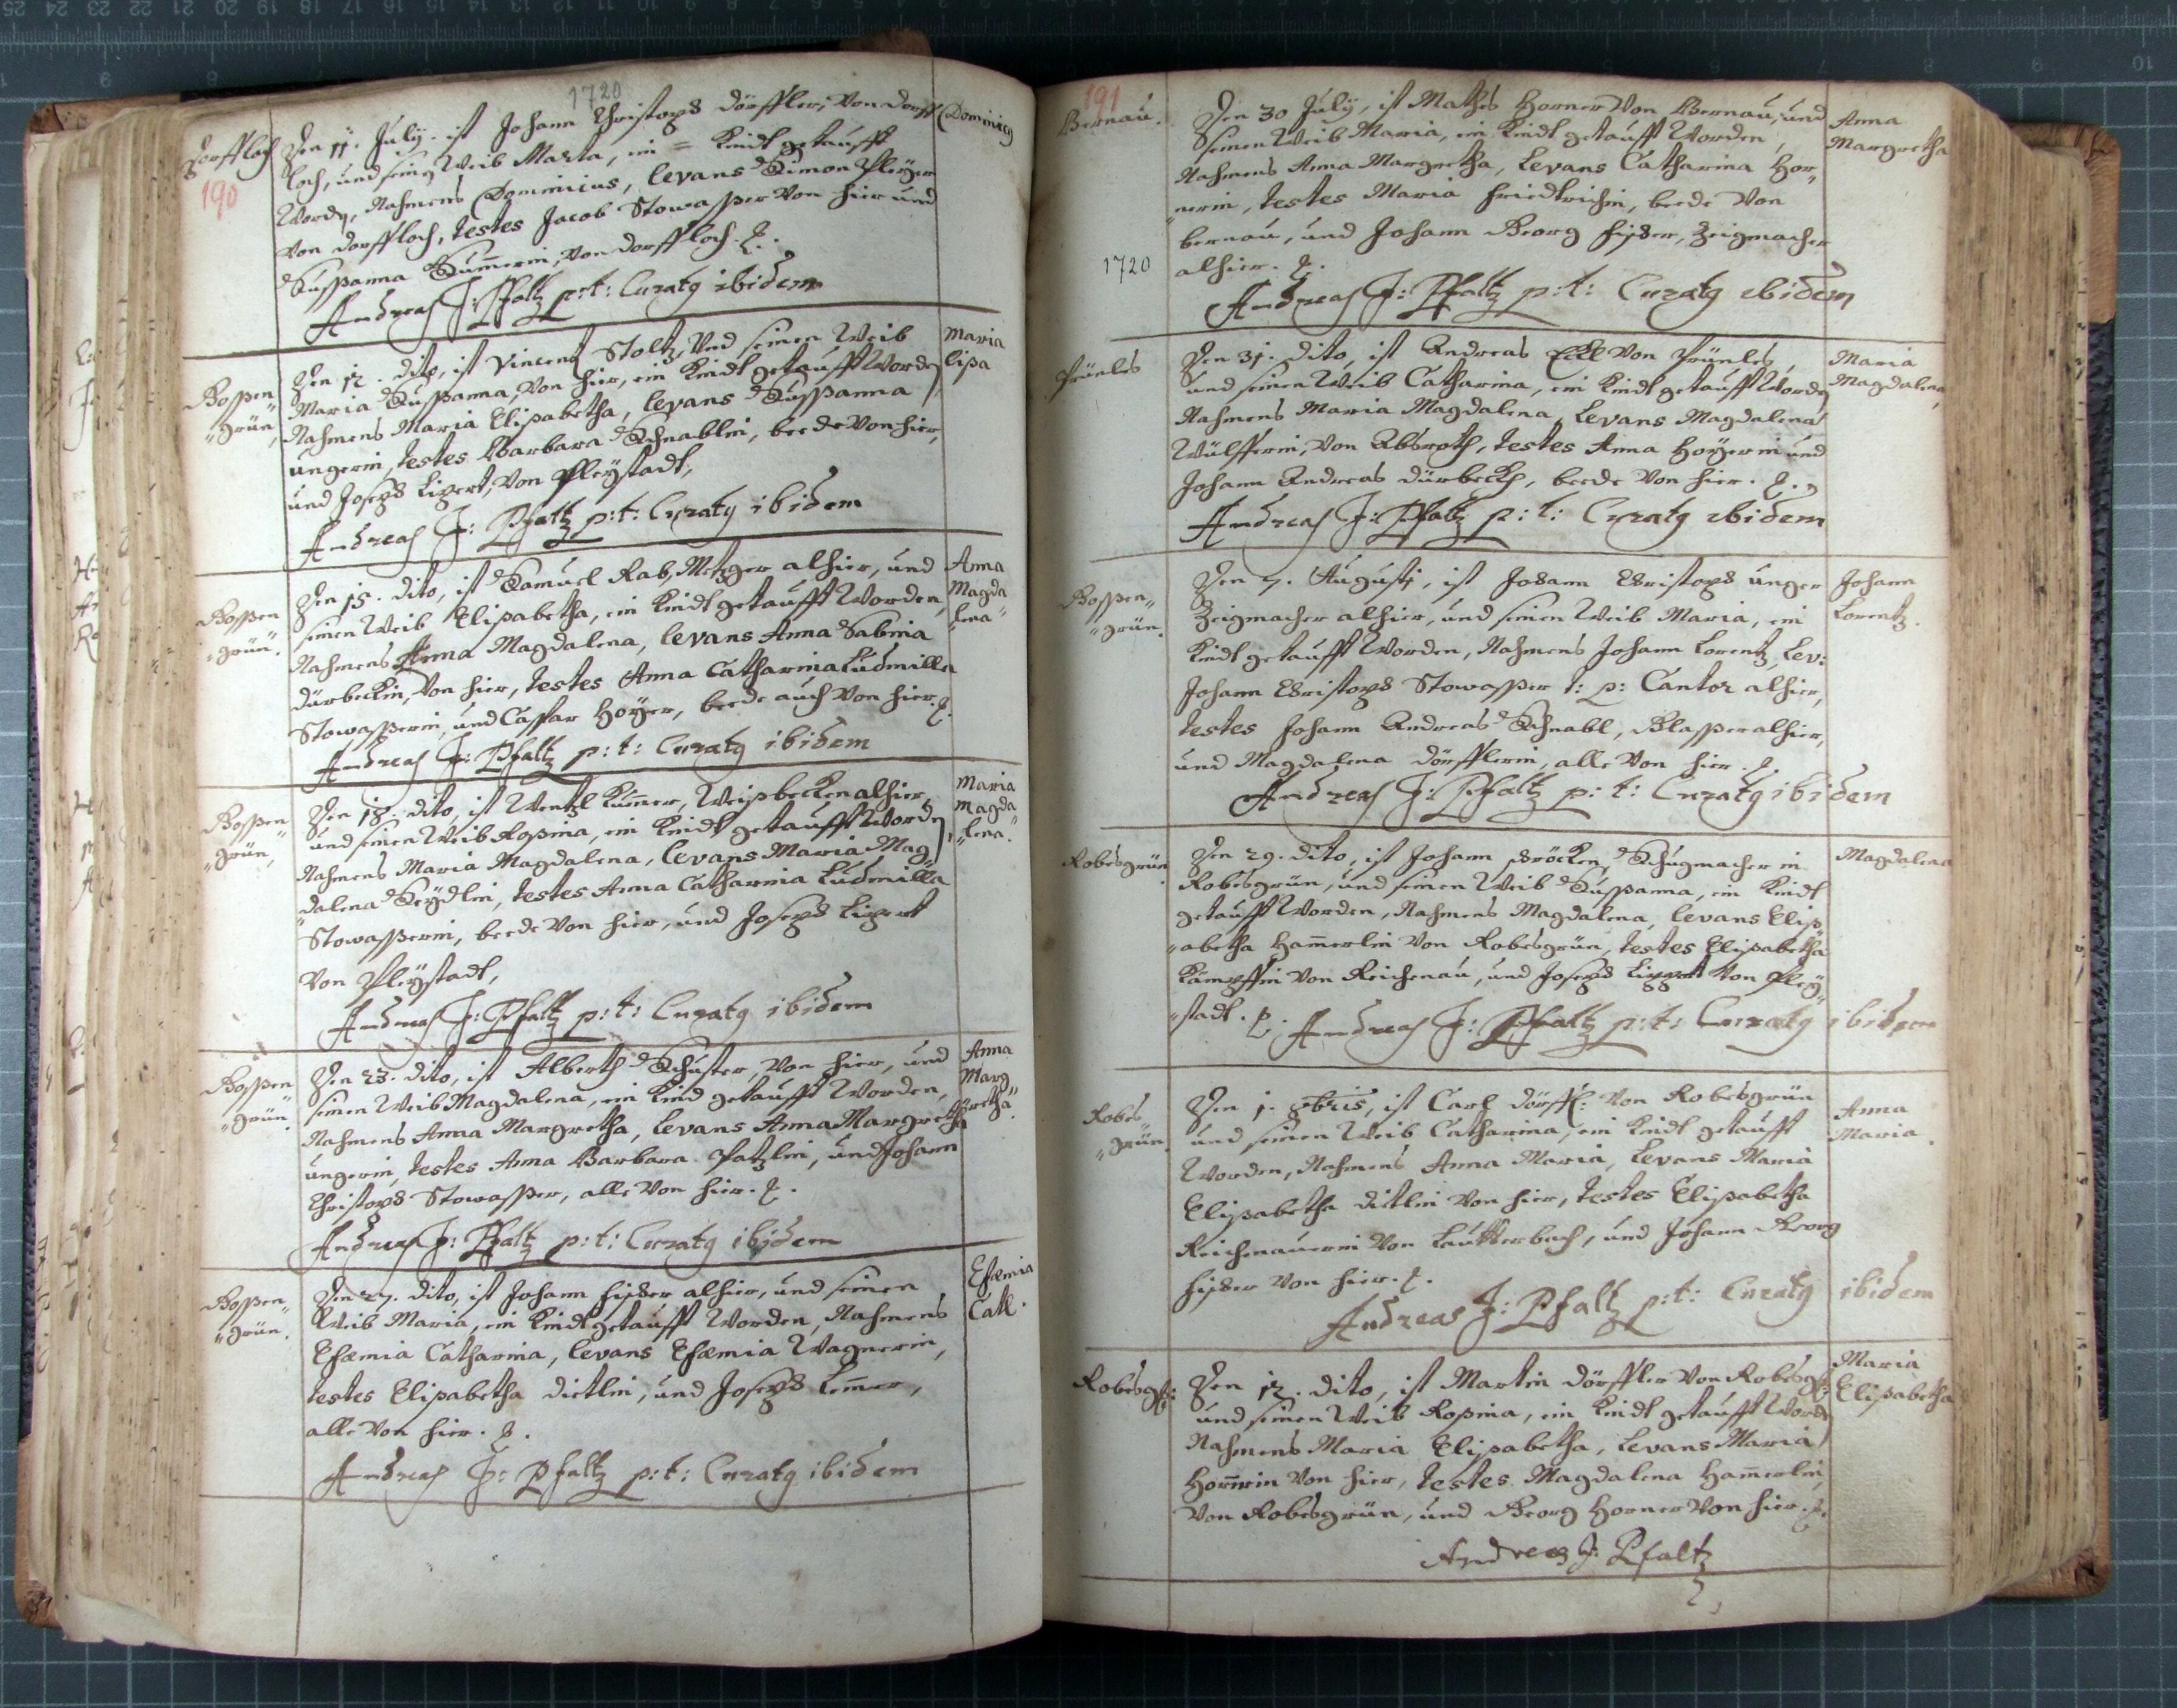 1720
Dorffloch
190
Den 11. July. ist Johann Christoph Dörffler, von Dorff
loch, und seinen Weib Marta, ein = Kindt getaufft
Worden, Nahmens Dominicus, levans Simon Pleyer
von Dorffloch, testes Jacob Stowasser von hier und
Sussanna Kummerin, von Dorffloch.
Andreas J: Pfaltz p:t: Curatg ibidem
Dominicg
Bossen
"grün,
Den 12. dito, ist Vincenz Stoltz, und seinen Weib
Maria Sussanna, von hier, ein Kindt getaufft Worden,
Nahmens Maria Elisabetha, levans Sussanna
ungerin, testes Barbara Schnablin, beede von hier,
und Joseph Lippert, von Pleystadt,
Andreas J: Pfaltz p:t: Curatg ibidem
Maria
lisa
Bossen
"grün.
Den 15. dito, ist Samuel Rab, Metzger alhier, und
seinen Weib Elisabetha, ein Kindt getaufft Worden,
Nahmens Anna Magdalena, levans Anna Sabina
Dürbeckin, von hier, testes Anna Catharina Ludmilla
Stowasserin, und Casspar Hoyer, beede auch von hier.
Andreas J: Pfaltz p:t: Curatg ibidem
Anna
Magda
"lena"
Bossen
"grün,
Den 18. dito, ist Wentzl Kummer, Weissbecken alhier,
und seinen Weib Rosina, ein Kindt getaufft Worden,
Nahmens Maria Magdalena, levans Maria Mag"
"dalena Seydlin, testes Anna Catharina Ludmilla
Stowasserin, beede von hier, und Joseph Lippert
von Pleystadt,
Andreas J: Pfaltz p:t: Curatg ibidem
Maria
Magda
"lena.
Bossen
"grün.
Den 23. dito, ist Alberth Schuster, von hier, und
seinen Weib Magdalena, ein Kind getaufft Worden,
Nahmens Anna Margretha, levans Anna Margretha
ungerin, testes Anna Barbara Patzlin, und Johann
Christoph Stowasser, alle von hier.
Andreas J: Pfaltz p:t: Curatg ibidem
Anna
Marg"
"retha.
Bossen"
"grün.
Den 27. dito, ist Johann Fisher alhier, und seinen
Weib Maria, ein Kindt getaufft Worden, Nahmens
Efæmia Catharina, levans Efæmia Wagnerin,
testes Elisabetha Dietlin, und Joseph Lemmer,
alle von hier.
Andreas J: Pfaltz p:t: Curatg ibidem
Efæmia
Cath.
191
Bernau.
1720
Den 30 July, ist Mathes Horner von Bernau, und
seinen Weib Maria, ein Kindt getaufft Worden,
Nahmens Anna Margretha, Levans Catharina Hor"
"nerin, testes Maria Friedrichin, beede von
bernau, und Johann Georg Fisher, Zeigmacher
alhier.
Andreas J: Pfaltz p:t: Curatg ibidem
Anna
Margretha
Prünles
Den 31. dito, ist Andreas Eckl von Prünles,
und seinen Weib Catharina, ein Kindt getaufft Worden
Nahmens Maria Magdalena, Levans Magdalena
Wülfferin, von Absroth, testes Anna Hoyerin und
Johann Andreas Dürbeckh, beede von hier.
Andreas J: Pfaltz p:t: Curatg ibidem
Maria
Magdalena,
Bossen"
"grün.
Den 7. Augusti, ist Johann Christoph unger
Zeigmacher alhier, und seinen Weib Maria, ein
Kindt getaufft Worden, Nahmens Johann Lorentz, Lev:
Johann Christoph Stowasser t: p: Cantor alhier,
testes Johann Andreas Schnabl, Glasser alhier,
und Magdalena Dörfflerin, alle von hier.
Andreas J: Pfaltz p:t: Curatg ibidem
Johann
Lorentz.
Robesgrün.
Den 29. dito, ist Johann Bröcken, Schugmacher in
Robesgrün, und seinen Weib Sussanna, ein Kindt
getaufft Worden, Nahmens Magdalena, levans Elis"
"abetha Hamerlin von Robesgrün, testes Elisabetha
Kämpffin von Reichenau, und Joseph Lippert von Pley"
"stadt. Andreas J: Pfaltz p:t: Curatg ibidem
Magdalena
Robes"
"grün.
Den 1. 8bris, ist Carl Dörffl: von Robesgrün
und seinen Weib Catharina, ein Kindt getaufft
Worden, Nahmens Anna Maria, Levans Maria
Elisabetha Dietlin von hier, testes Elisabetha
Reichenauerin von Lautterbach, und Johann Georg
Fisher von hier.
Andreas J: Pfaltz p:t: Curatg ibidem
Anna
Maria.
Robesg:
Den 12. dito, ist Martin Dörffler von Robesg:
und seinen Weib Rosina, ein Kindt getaufft Worden
Nahmens Maria Elisabetha, Levans Maria
Hornerin von hier, testes Magdalena Hamerlin,
von Robesgrün, und Georg Horner von hier.
Andreas J: Pfaltz
Maria
Elisabetha